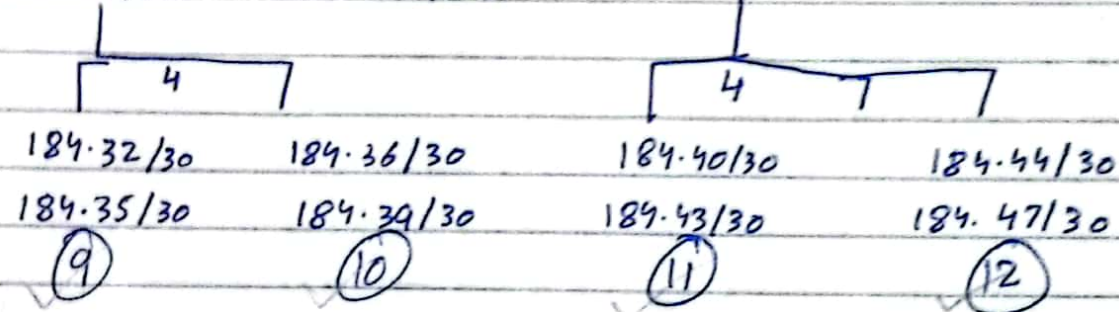 4 4
184.32/30 184.36/30 184.40/30 184.44/30
184.35/30 184.39/30 184.43/30 184.47/30
9 10 11 12